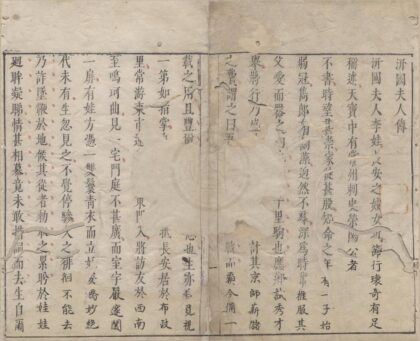 汧國夫人傳
汧國夫人李娃長安之娼女也節行瓌奇有足
稱述天寶中有常州刺史滎陽公者
不書時望甚崇家徒甚殷知命之年有一子始
弱冠雋郎有詞藻迥然不群深為時輩推服其
父愛而器之曰千里駒也應鄉賦秀才
舉將行乃計其京師薪儲
之費謂之曰吾戰而霸今備一
載之用且豐爾心也生亦自負視
一第如指掌抵長安居於布政
里常游東市還東門入將訪友於西南
至鳴珂曲見一宅門庭不甚廣而室宇嚴邃闔
一扉有娃方憑一雙鬟青衣而立妖姿要妙絕
代未有生忽見之不覺停驂久之徘徊不能去
乃詐墜鞭於地候其從者勑取之累眄於娃娃
迴眸凝睇情甚相慕竟未敢措詞而去生自爾